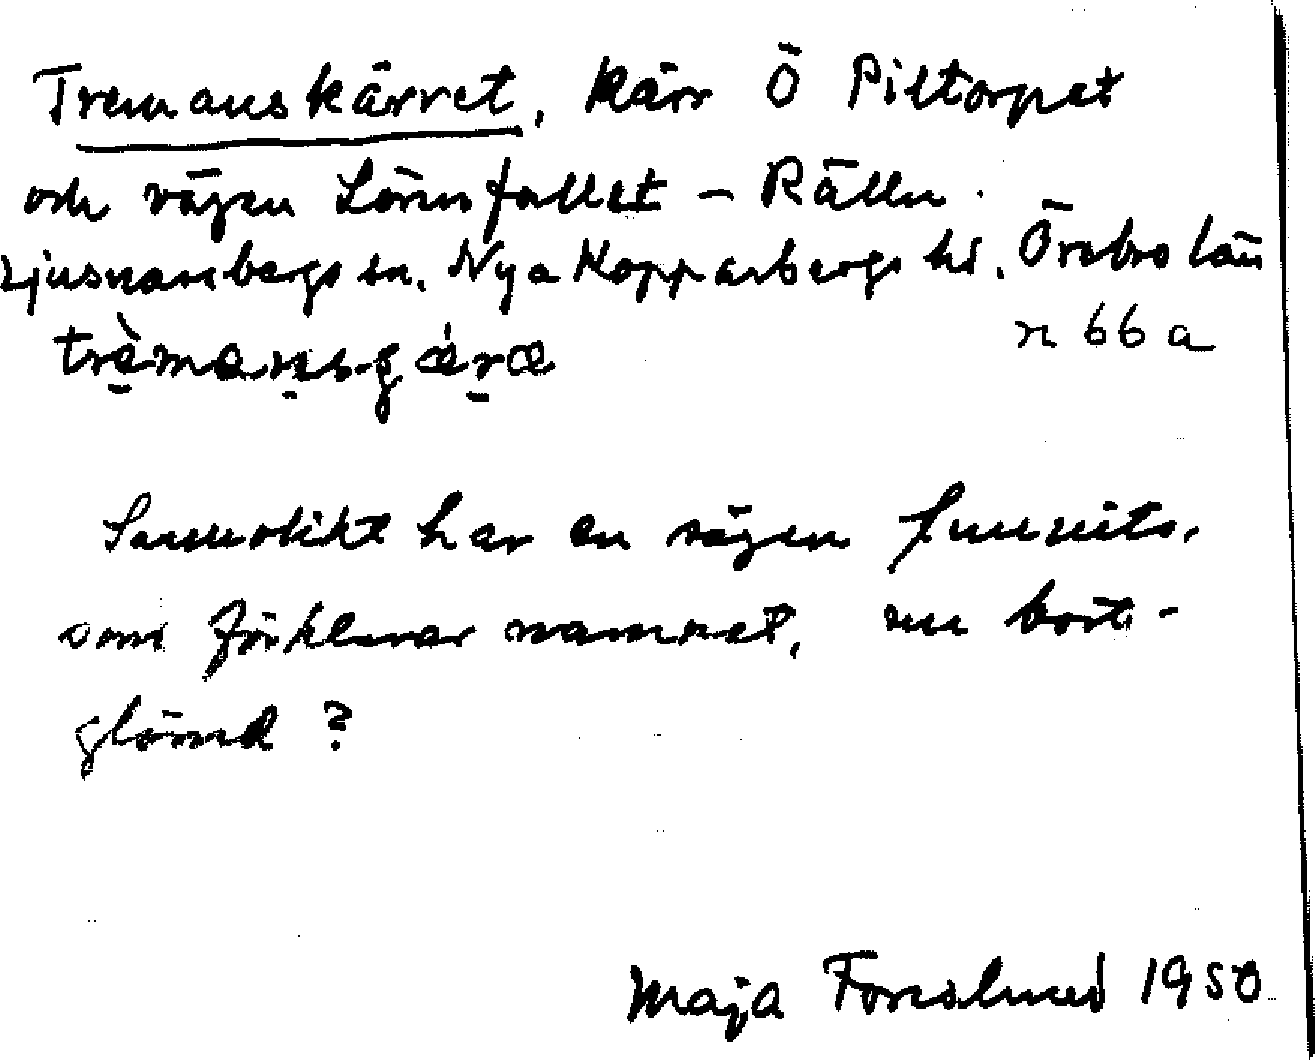 Tremanskärret, kärr Ö Piltorpet
och vägen Lönnfallet - Rällen.
Ljusnarsbergs sn. Nya Kopparbergs hd. Örebro län
n 66 a
trèmansgǽræ
Sannolikt har en sägen funnits,
som förklarar namnet, nu bort-
glömd?
Maja Forslund 1950